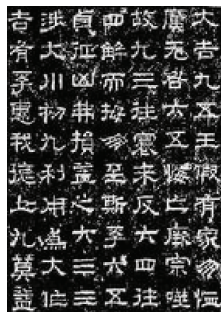 大吉九五王假有家勿恤
厲无咎六五悔亡厥宗噬
故九三往蹇來反六四往
四解而拇朋至斯孚六五
貞征凶弗損益之六三三
涉大川初九利用爲大作
吉有孚惠我德上九莫益